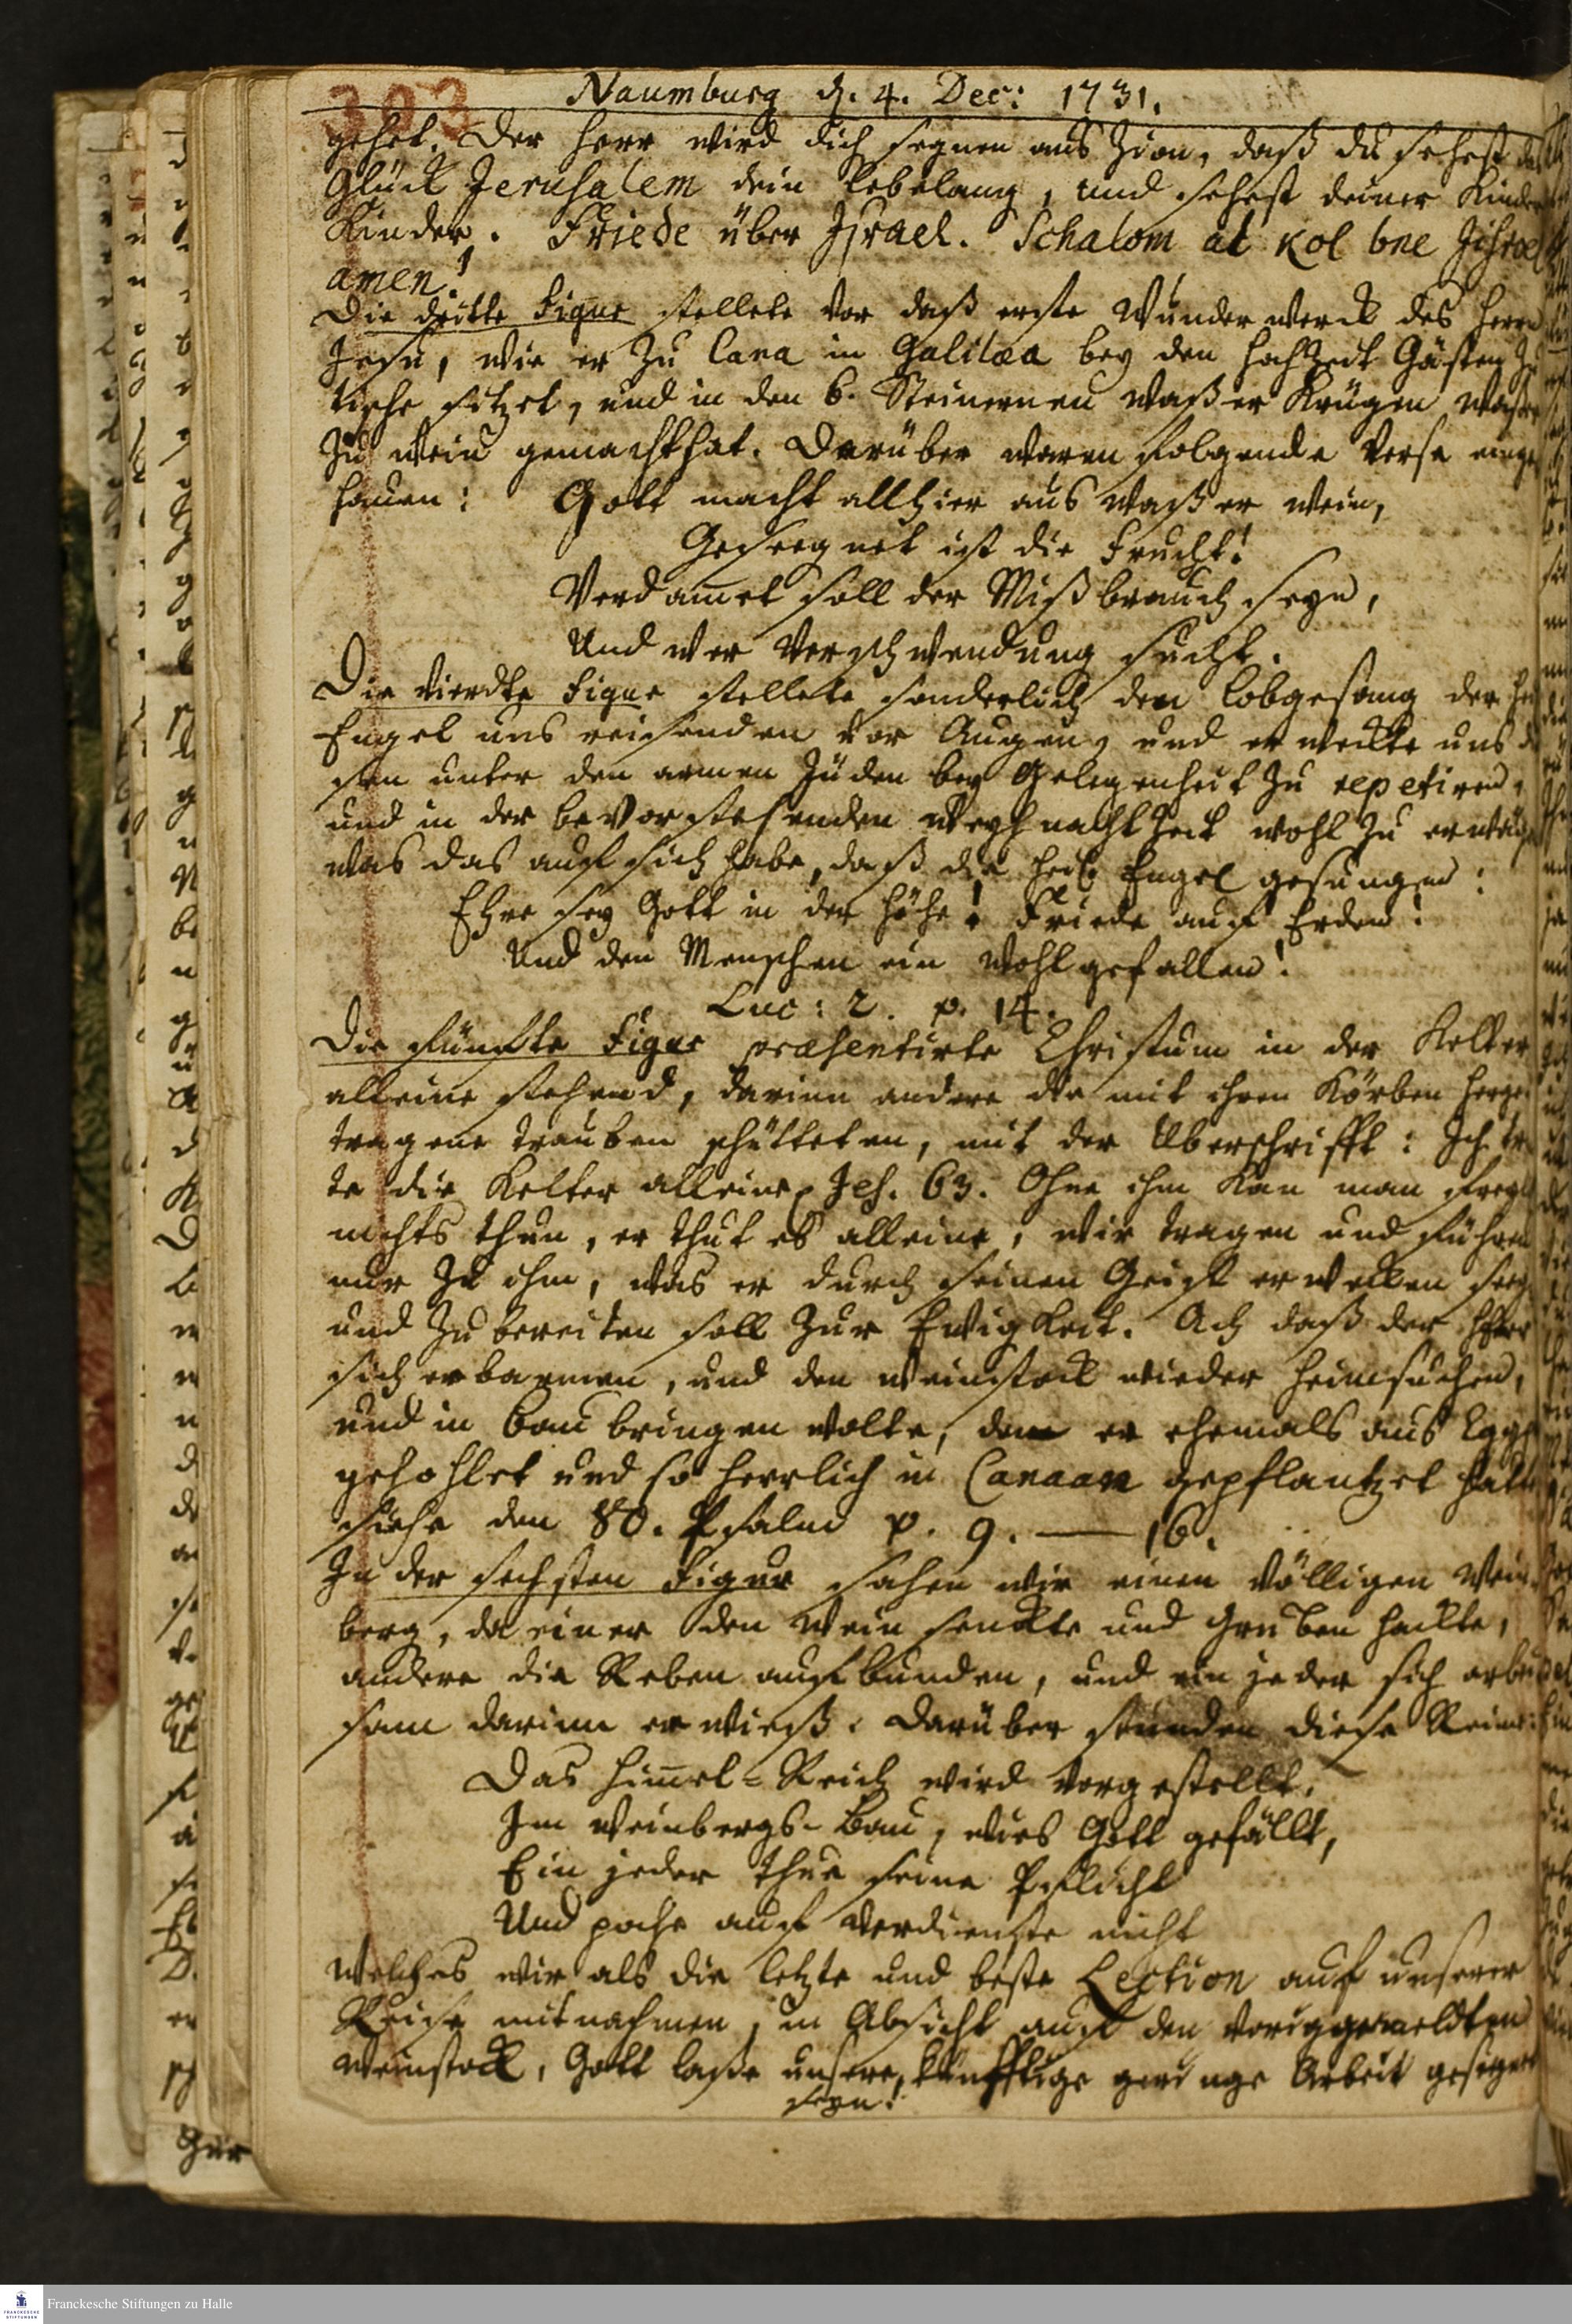 303
Naumburg d. 4. Dec: 1731.
gehet. Der Herr wird dich segnen aus Zion, daß du sehest das
Glück Jerusalem dein lebelang, und sehest deiner Kinder
Kinder. Friede über Israel. Schalom al kol bne Jisroel
amen!
Die dritte Figur stellete vor daß erste Wunderwerck des Herrn
Jesu, wie er zu Cana in Galilæa bey den Hochzeit Gästen zu
tische sitzet, und in den 6. Steinernen Waßer Krügen Waßer
zu Wein gemacht hat. Darüber waren folgende Verse einge
hauen: Gott macht allhier aus Waßer Wein,
Geseegnet ist die Frucht!
Verdamet soll der Mißbrauch seyn,
Und wer Verschwendung sucht.
Die Vierdte Figur stellete sonderlich den Lobgesang der
Engel uns reisenden vor Augen, und erweckte uns
sen unter den armen Juden bey Gelegenheit zu repetiren,
und in der bevorstehenden Weyhnacht Zeit wohl zu erwegen
was das auf sich habe, daß die heil. Engel gesungen:
Ehre sey Gott in der Höhe! Friede auf Erden!
Und den Menschen ein Wohlgefallen!
Luc: 2. v. 14.
Die fünfte Figur præsentirte Christum in der Kelter
alleine stehend, darinn andere die mit ihren Körben herge
tragene trauben schütteten, mit der Überschrifft: Ich tre
te die Kelter alleine, Jes. 63. Ohne ihm kan man
nichts thun, er thut es alleine, wir tragen und führen
nur zu ihm, was er durch seinen Geist erwecken
und zubereiten soll zur Ewigkeit. Ach daß der Herr
sich erbarmen, und den Weinstock wieder heimsuchen,
und in bau bringen wolte, den er ehemals aus Egyp
gehohlet und so herrlich in Canaan gepflantzet hatte
siehe den 80. Psalm v. 9. — 16.
In der sechsten Figur sahen wir einen völligen Wein
berg, da einer den Wein senckte und Gruben hackte,
andere die Reben aufbunden, und ein jeder sich arbeit
sam darinn erwieß. Darüber stunden diese Reime:
Das Himel-Reich wird vorgestellt,
Im Weinbergs-Bau, wies Gott gefällt,
Ein jeder thue seine Pflicht
Und poche auf Verdienste nicht
Welches wir als die letzte und beste Lection auf unserer
Reise mitnahmen, in Absicht auf den voriggemeldten
Weinstock, Gott laße unsere künfftige geringe Arbeit gesegnet
seyn!
Franckesche Stiftungen zu Halle